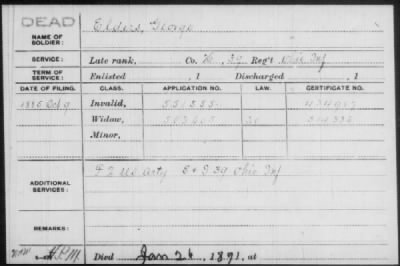 DEAD
Elders, George
NAME OF
SOLDIER:
SERVICE: Late rank, Co. K, 39 Reg't Ohio Inf
TERM OF
SERVICE: Enlisted , 1 Discharged , 1
DATE OF FILING. CLASS. APPLICATION NO. LAW. CERTIFICATE NO.
1885 Oct 9 Invalid,
Widow,
Minor,
ADDITIONAL
SERVICES:
F 2 US Arty E & I 39 Ohio Inf
REMARKS:
Died Jan 26, 1891, at